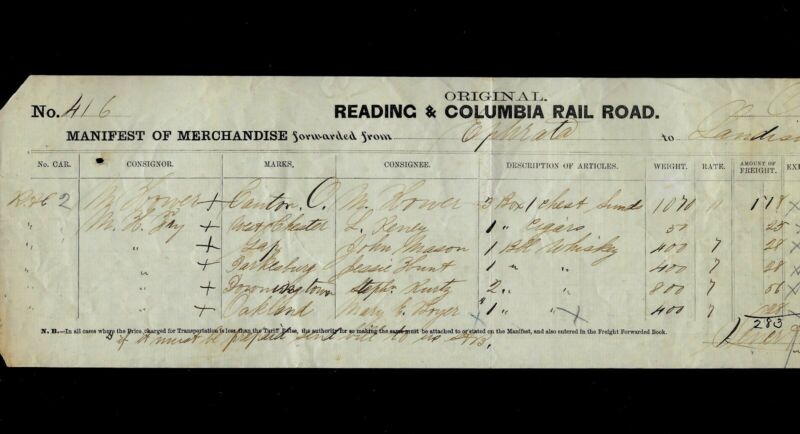 ORIGINAL.
No. 416 READING & COLUMBIA RAIL ROAD.
MANIFEST OF MERCHANDISE forwarded from Ephrata to
No. CAR. CONSIGNOR. MARKS. CONSIGNEE. DESCRIPTION OF ARTICLES. WEIGHT. RATE. AMOUNT OF FREIGHT.
2 M. + Canton, O. M. Box 1 chest 1070
M. + West Chester L. 1 " Cigars 50 25
" " + Gap John Mason 1 Bbl Whisky 400 7 28
" " + Parkesburg Jessie Hunt 1 " " 400 7 28
" " + Downingtown Steph. Kurtz 2 " " 800 7 56
" " + Oakland Mary E. Boyer 1 " " 400 7 28
283
N. B.—In all cases where the Price charged for Transportation is less than the Tariff Rates, the authority for so making the same must be attached to or stated on the Manifest, and also entered in the Freight Forwarded Book.
if it must be prepaid send bill to us